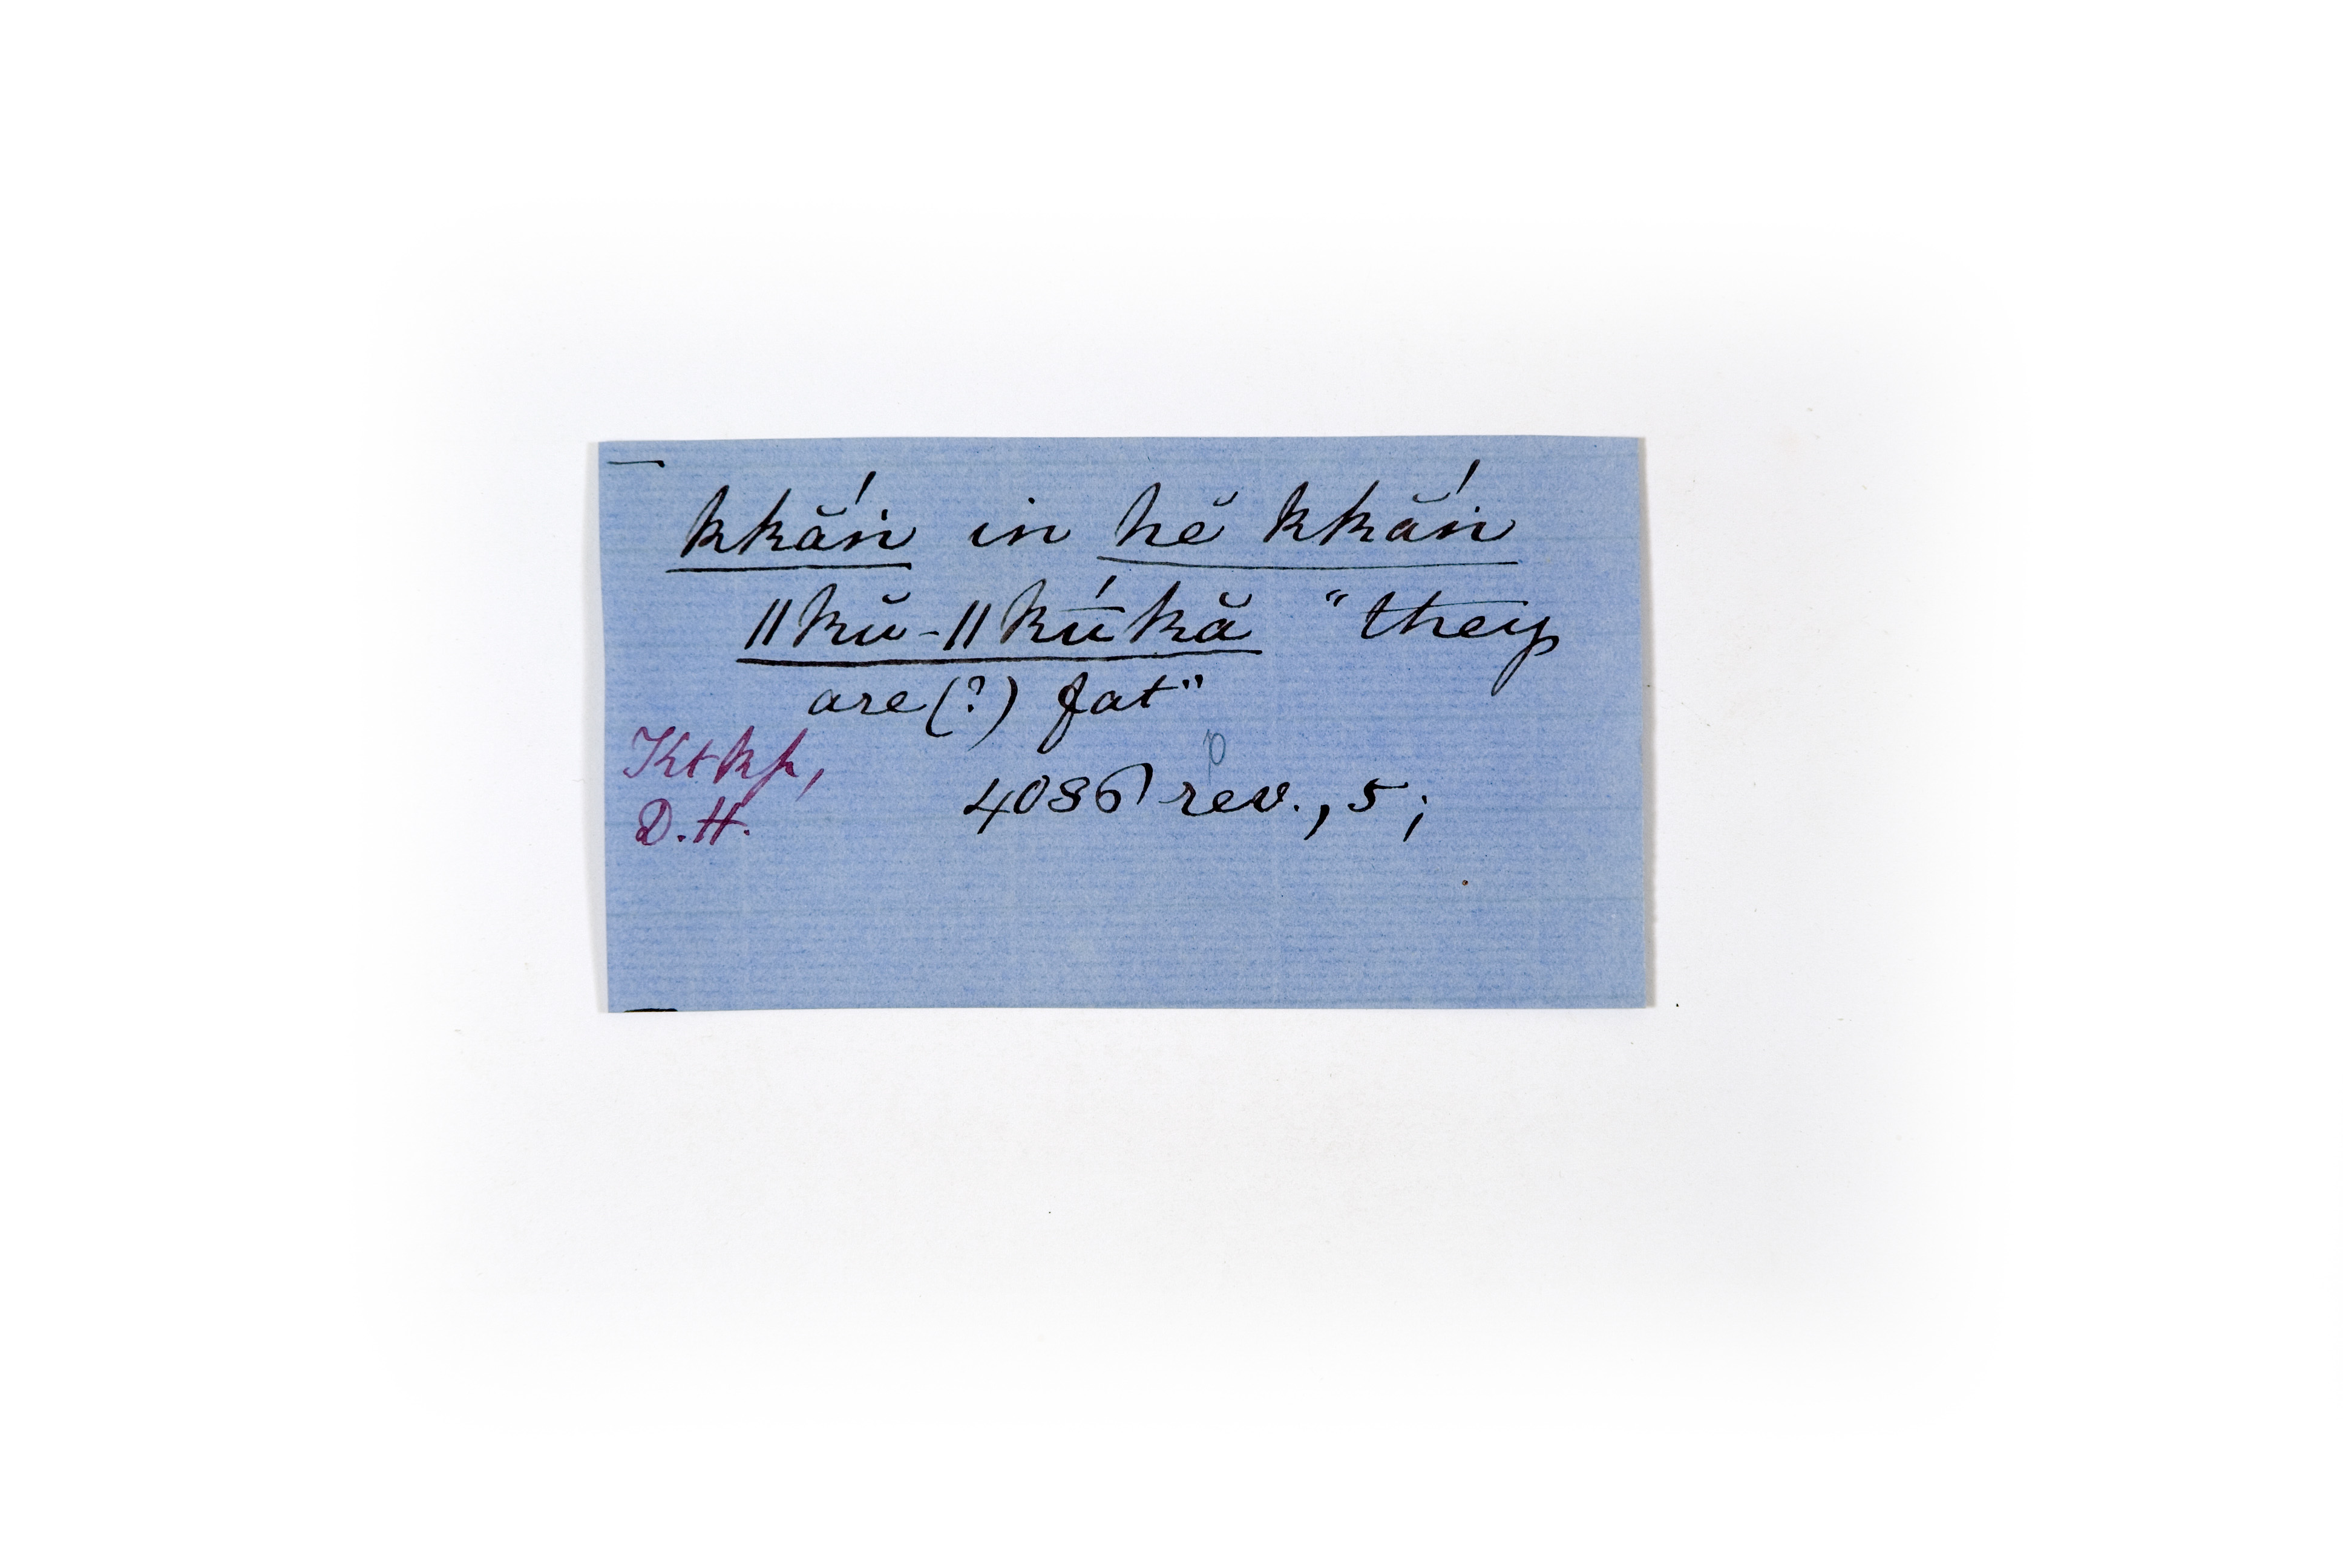 kkắn in hĕ kkắn
ǁkŭ-ǁkū́kă "they
are (?) fat"
Ktkp,
D. H.
4086 rev., 5;